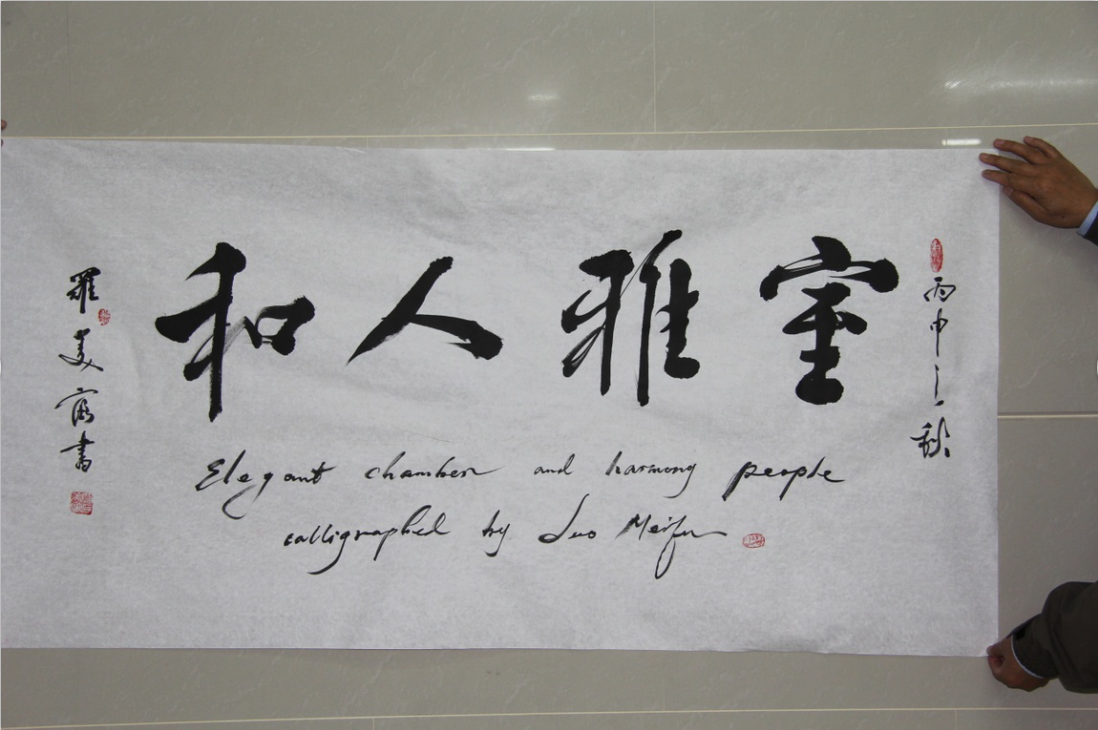 丙申之秋
室雅人和
羅美富書
Elegant chamber and harmony people
calligraphed by Luo Meifu